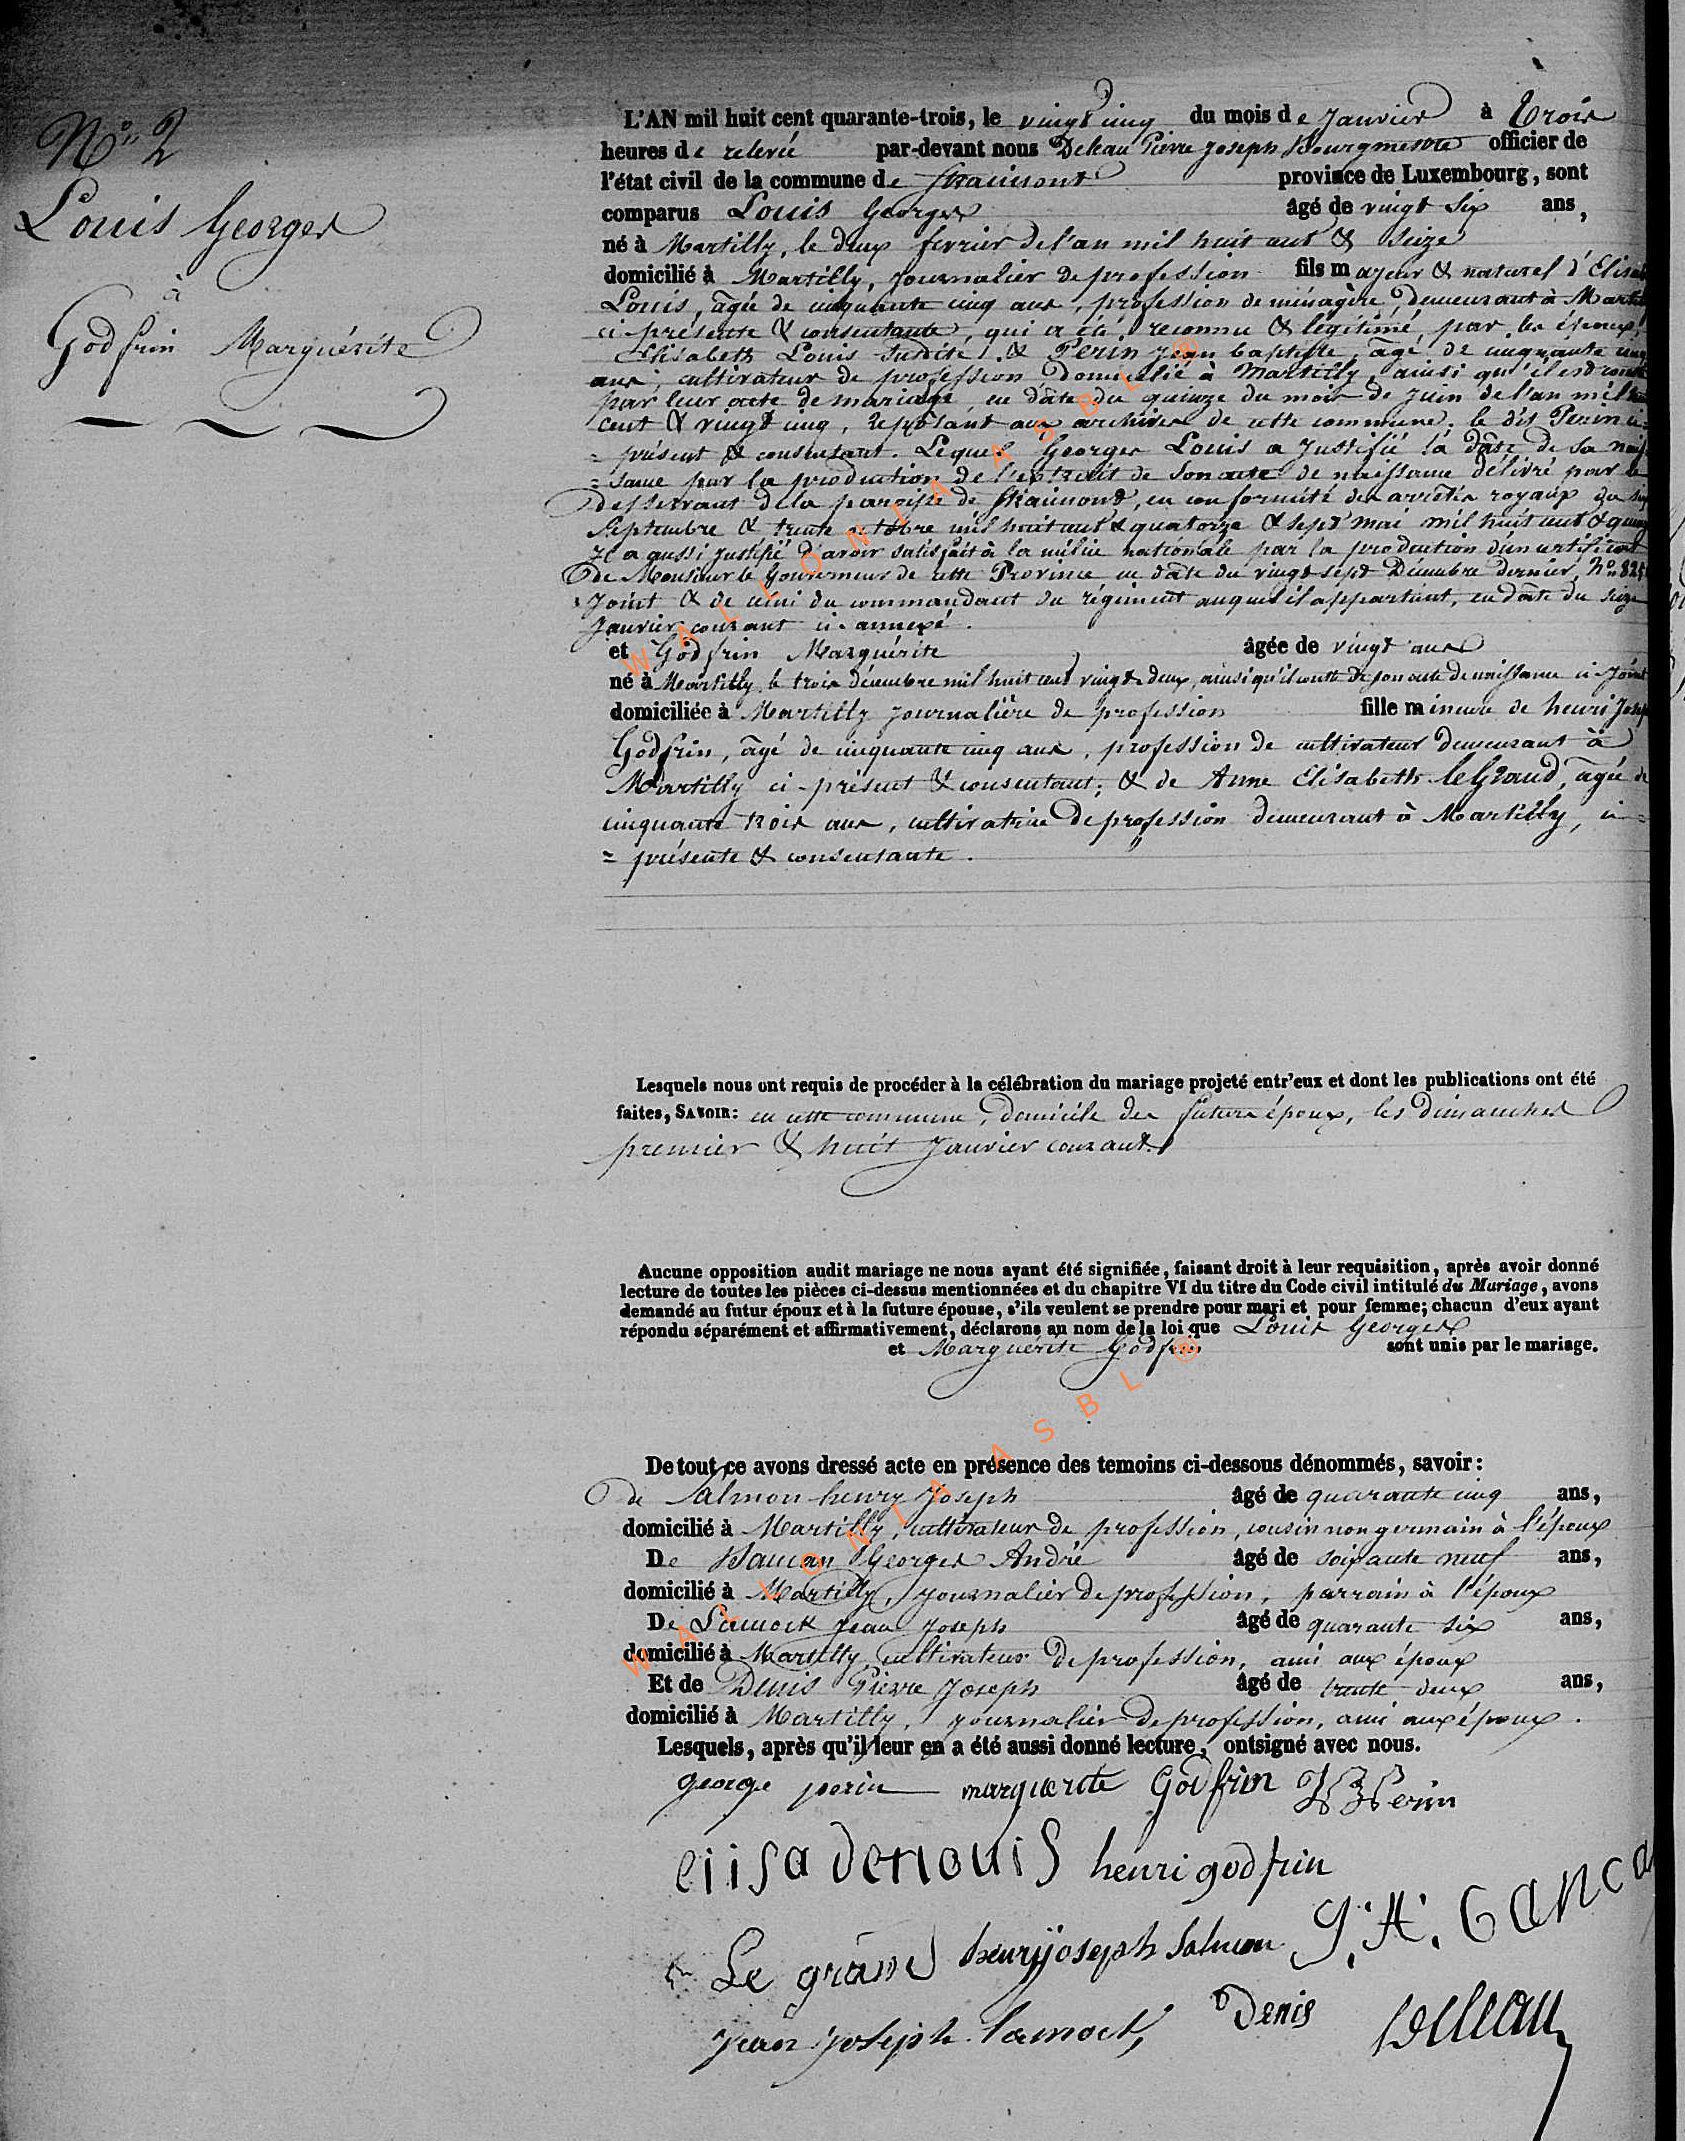 N.° 2
Louis Georges
à
Godfrin Marguérite
L'AN mil huit cent quarante-trois, le vingt cinq du mois de Janvier à trois
heures de relevée par-devant nous Delleau Pierre Joseph Bourgmestre officier de
l'état civil de la commune de Straimont province de Luxembourg, sont
comparus Louis Georges âgé de vingt six ans,
né à Martilly, le deux fevrier de l'an mil huit cent & seize
domicilié à Martilly, journalier de profession fils majeur & naturel d'Elisabeth
Louis, âgée de cinquante cinq ans, profession de ménagère, demeurant à Martilly
ci-présente & consentante, qui a été reconnu & légitimé, par les époux
Elisabeth Louis susdite, & Perin Jean baptiste, âgé de cinquante cinq
ans, cultivateur de profession domicilié à Martilly, ainsi qu'il est constaté
par leur acte de mariage, en date du quinze du mois de juin de l'an mil huit
cent & vingt cinq, reposant aux archives de cette commune. le dit Perin ci-
- présent & consentant. Lequel Georges Louis a justifié la date de sa nais
= sance par la production de l'extrait de son acte de naissance délivré par le
desservant de la paroisse de Straimont, en conformité des arrêtés royaux du
Septembre & trente octobre mil huit cent & quatorze & sept mai mil huit cent & quinze
il a aussi justifié d'avoir satisfait à la milice nationale par la production d'un certificat
de Monsieur le Gouverneur de cette Province en date du vingt sept Décembre dernier, N.°
joint & de celui du commandant du régiment auquel il appartient, en date du seize
Janvier courant ci-annexé.
et Godfrin Marguérite âgée de vingt ans
né à Martilly, le trois décembre mil huit cent vingt-deux, ainsi qu'il conste de son acte de naissance ci-joint
domiciliée à Martilly journalière de profession fille mineure de henri Joseph
Godfrin, âgé de cinquante cinq ans, profession de cultivateur demeurant à
Martilly ci-présent & consentant; & de Anne Elisabeth leGrand, âgée de
cinquante trois ans, cultivatrice de profession demeurant à Martilly, ci =
= présente & consentante.
Lesquels nous ont requis de procéder à la célébration du mariage projeté entr'eux et dont les publications ont été
faites, SAVOIR: en cette commune, domicile des futurs époux, les dimanches
premier & huit Janvier courant.
Aucune opposition audit mariage ne nous ayant été signifiée, faisant droit à leur requisition, après avoir donné
lecture de toutes les pièces ci-dessus mentionnées et du chapitre VI du titre du Code civil intitulé du Mariage, avons
demandé au futur époux et à la future épouse, s'ils veulent se prendre pour mari et pour femme; chacun d'eux ayant
répondu séparément et affirmativement, déclarons au nom de la loi que Louis Georges
et Marguérite Godfrin sont unis par le mariage.
De tout ce avons dressé acte en présence des temoins ci-dessous dénommés, savoir:
de Salmon henry Joseph âgé de quarante cinq ans,
domicilié à Martilly, cultivateur de profession, cousin non germain à l'époux
De Georges André âgé de soixante neuf ans,
domicilié à Martilly, journalier de profession, parrain à l'époux
De Lamock Jean Joseph âgé de quarante six ans,
domicilié à Martilly cultivateur de profession, ami aux époux
Et de Denis Pierre Joseph âgé de trente deux ans,
domicilié à Martilly, journalier de profession, ami aux époux.
Lesquels, après qu'il leur en a été aussi donné lecture, ont signé avec nous.
george perin marguerite Godfrin JBPerin
henri godfrin
Le grand henryjoseph Salmon G. A.
jean joseph lamock Denis Delleau
WALLONIA ASBL ®
WALLONIA ASBL ®